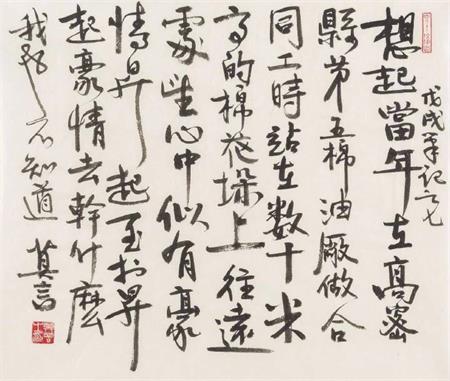 戊戌筆記之七
想起當年在高密
縣第五棉油廠做合
同工時站在数十米
高的棉花垛上往遠
處望心中似有豪
情昇起至於昇
起豪情去幹什麽
我却不知道 莫言